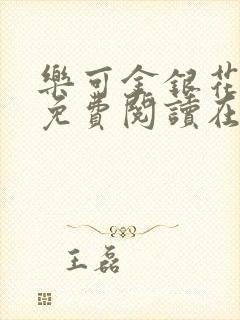 樂可金銀花
免費閱讀在
王磊